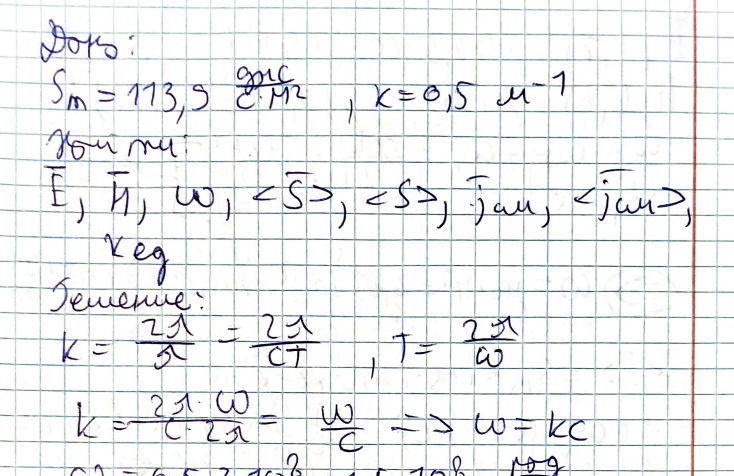 Дано:
Sm = 113,9 Дж/(с·м²), k = 0,5 м⁻¹
Найти:
E̅, H̅, ω, <S̅>, <S>, j̅см, <j̅см>,
Kед
Решение:
k = 2π/λ = 2π/(cT), T = 2π/ω
k = (2π·ω)/(c·2π) = ω/c => ω = kc